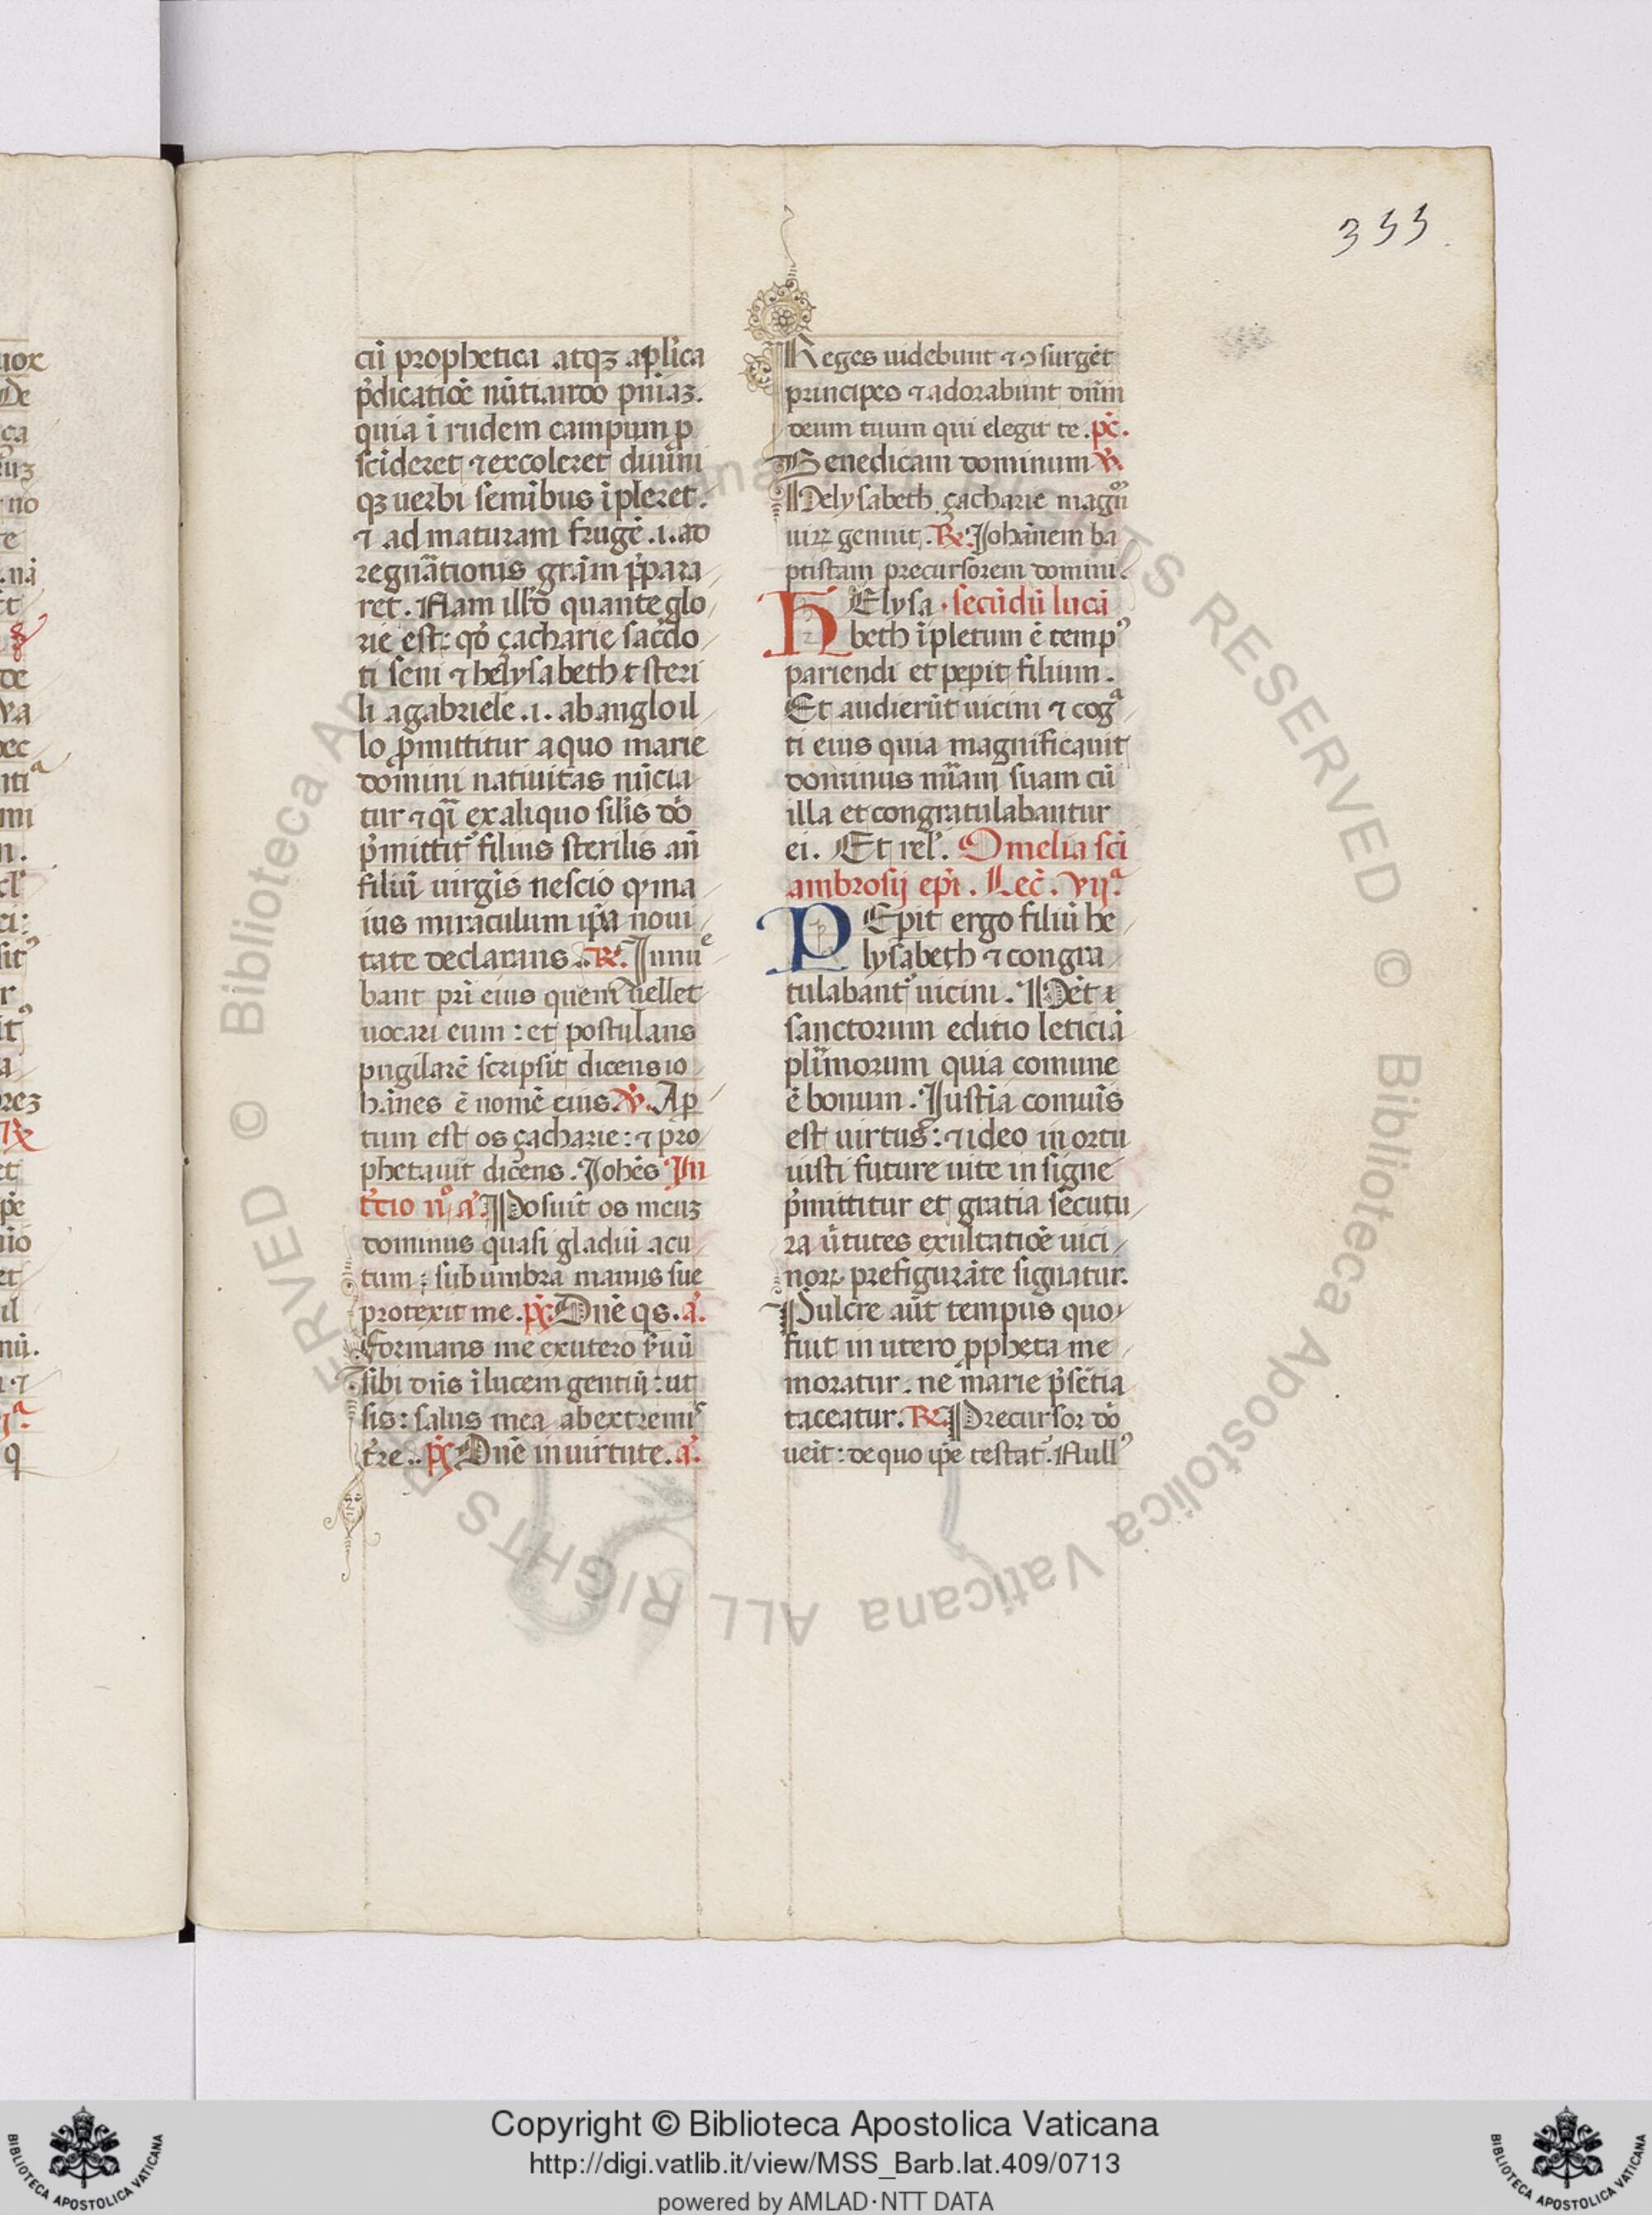 333
cū prophetica atqꝫ aplica
p̄dicatiōe nūtiando pniaꝫ.
quia ī rudem campum p
scideret ⁊ excoleret diuini
qꝫ uerbi seminibus īpleret.
⁊ ad maturam frugē .i. ad
regnationis grām p̄para
ret. Nam illđ quante glo
rie est: qđ çacharie sacdo
ti seni ⁊ helysabeth t steri
li agabriele .i. ab anglo il
lo p̄mittitur a quo marie
domini natiuitas nūcia
tur ⁊ exaliquo silis dō
p̄mittit filius sterilis an̄
filiū uirgīs nescio qᷓ ma
ius miraculum ip̄a noui
tate declarans. R̷. Innue
bant pri eius quem uellet
uocari eum: et postulans
pugilarē scripsit dicens io
hānes ē nomē eius. V̷. Ap
tum est os çacharie: ⁊ pro
phetauit dicens. Johēs In
ttio nº. a͛. Posuit os meuꝫ
dominus quasi gladiū acu
tum: sub umbra manus sue
protexit me. ps̄. Dn̄e qs. a͛.
Formans me exutero seruū
sibi dn̄s ī lucem gentiū: ut
sis: salus mea ab extremis
tr̄e. ps̄ Dn̄e in uirtute. a͛.
Reges uidebunt ⁊ ꝯsurgēt
principes ⁊ adorabunt dnm
deum tuum qui elegit te. ps̄.
Benedicam dominum V̷.
Helysabeth çacharie magnū
uiꝝ genuit. R̷. Johānem ba
ptistam precursorem domini.
HElysa secūdū lucā
beth īpletum ē temp⁹
pariendi et pepit filium.
Et audierūt uicini ⁊ cogᵃ
ti eius quia magnificauit
dominus mīam suam cū
illa et congratulabantur
ei. Et rel'. Omelia sci
ambrosij epi. Lec̄. vijᵃ.
PEpit ergo filiū he
lysabeth ⁊ congra
tulabant uicini. Het
sanctorum editio leticiā
plimorum quia comune
ē bonum. Justia comuīs
est uirtus: ⁊ ideo in ortu
iusti future uite insigne
p̄mittitur et gratia secutu
ra ūtutes exultatiōe uici
noꝝ prefigurāte signatur.
Pulcre aut tempus quo
fuit in utero ppheta me
moratur. ne marie p̄sētia
taceatur. R̷. Precursor dō
ueit: de quo ip̄e testat. Null⁹
© Biblioteca Apostolica Vaticana ALL RIGHTS RESERVED © Biblioteca Apostolica Vaticana ALL RIGHTS RESERVED
BIBLIOTECA APOSTOLICA VATICANA
Copyright © Biblioteca Apostolica Vaticana
http://digi.vatlib.it/view/MSS_Barb.lat.409/0713
powered by AMLAD·NTT DATA
BIBLIOTECA APOSTOLICA VATICANA